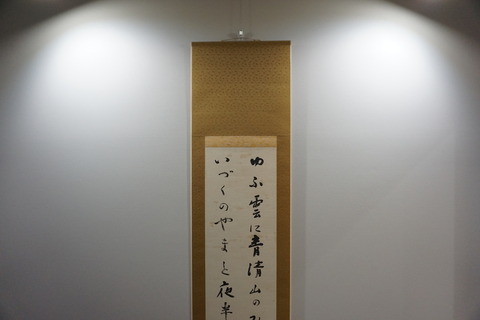 ゆふ雲に青清山の
いづくのやまと夜半